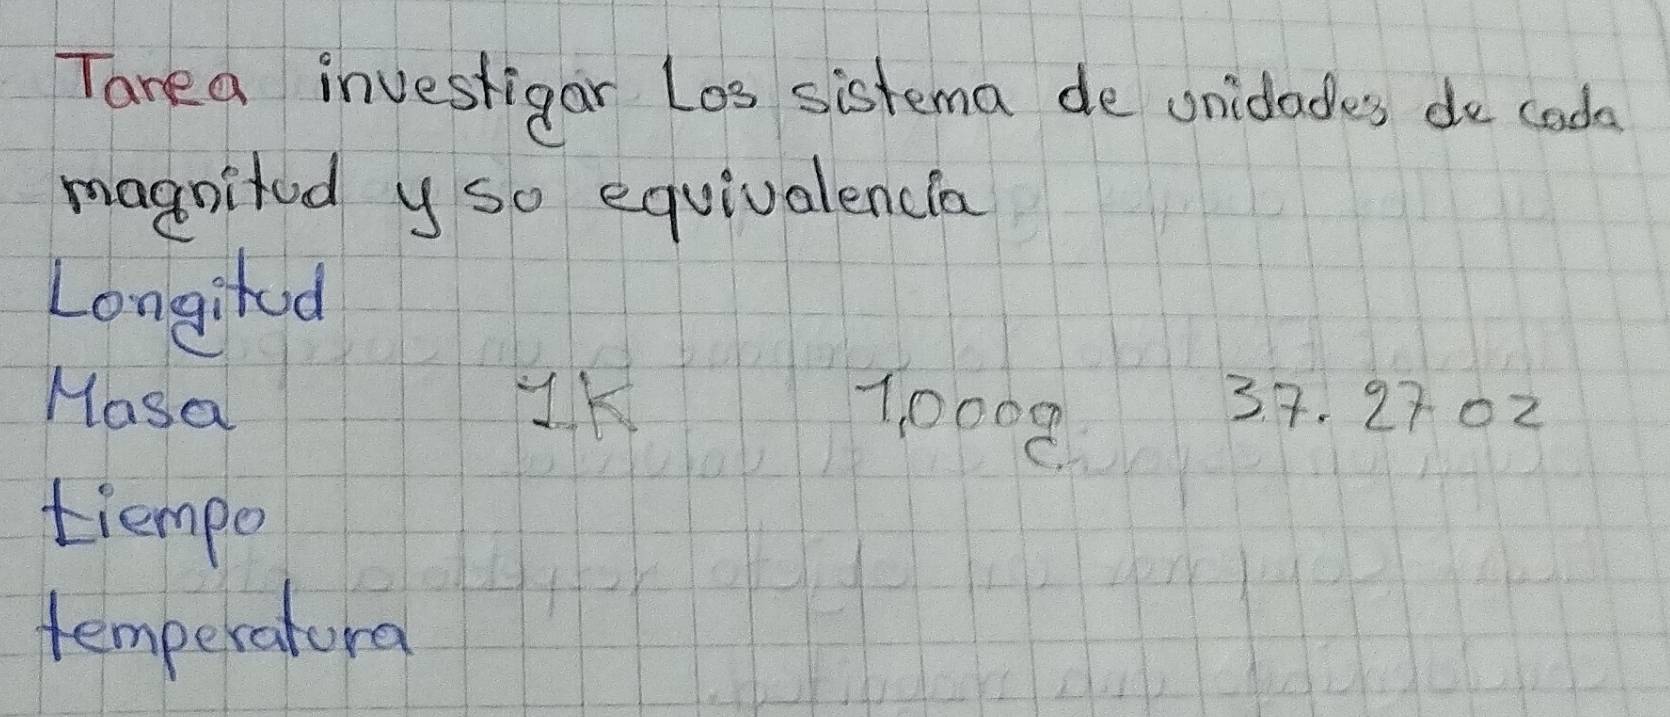 Tarea investigar Los sistema de unidades de cada
magnitud y su equivalencia
Longitud
Masa 1K 1,000g 37.27 oz
tiempo
temperatura